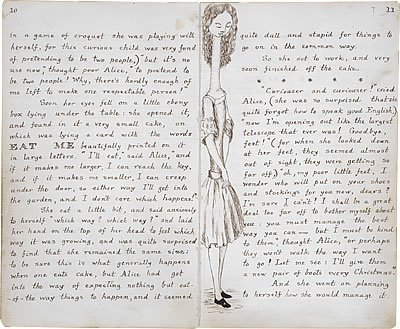 10
in a game of croquet she was playing with
herself, for this curious child was very fond
of pretending to be two people,) but it's no
use now," thought poor Alice, "to pretend to
be two people! Why, there's hardly enough of
me left to make one respectable person!"
Soon her eyes fell on a little ebony
box lying under the table: she opened it,
and found in it a very small cake, on
which was lying a card with the words
EAT ME beautifully printed on it
in large letters. "I'll eat," said Alice, "and
if it makes me larger, I can reach the key,
and if it makes me smaller, I can creep
under the door, so either way I'll get into
the garden, and I don't care which happens!"
She eat a little bit, and said anxiously
to herself "which way? which way?" and laid
her hand on the top of her head to feel which
way it was growing, and was quite surprised
to find that she remained the same size:
to be sure this is what generally happens
when one eats cake, but Alice had got
into the way of expecting nothing but out-
of-the way things to happen, and it seemed
11
quite dull and stupid for things to
go on in the common way.
So she set to work, and very
soon finished off the cake.
* * * * * *
"Curiouser and curiouser!" cried
Alice, (she was so surprised that she
quite forgot how to speak good English,)
"now I'm opening out like the largest
telescope that ever was! Goodbye,
feet!" (for when she looked down
at her feet, they seemed almost
out of sight, they were getting so
far off,) "oh, my poor little feet, I
wonder who will put on your shoes
and stockings for you now, dears?
I'm sure I can't! I shall be a great
deal too far off to bother myself about
you: you must manage the best
way you can — but I must be kind
to them", thought Alice, "or perhaps
they won't walk the way I want
to go! Let me see: I'll give them
a new pair of boots every Christmas."
And she went on planning
to herself how she would manage it: